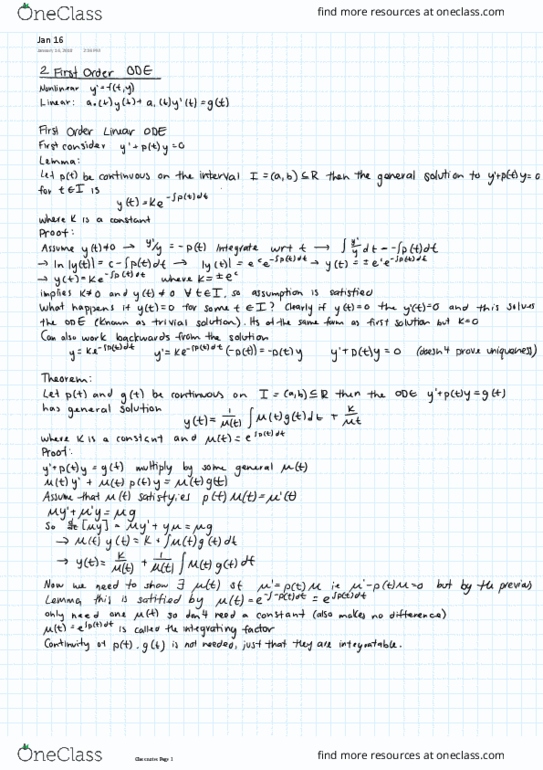 OneClass
find more resources at oneclass.com
Jan 16
2:30 PM
2 First Order ODE
Nonlinear y'=f(t,y)
Linear: a₀(t)y(t)+a₁(t)y'(t)=g(t)
First Order Linear ODE
First consider y'+p(t)y=0
Lemma:
Let p(t) be continuous on the interval I=(a,b)⊆R then the general solution to y'+p(t)y=0
for t∈I is
y(t)=Ke^{-∫p(t)dt}
where K is a constant
Proof:
Assume y(t)≠0 → y'/y = -p(t) Integrate wrt t → ∫ y'/y dt = -∫p(t)dt
→ ln|y(t)| = c-∫p(t)dt → |y(t)| = e^c e^{-∫p(t)dt} → y(t) = ±e^c e^{-∫p(t)dt}
→ y(t)=Ke^{-∫p(t)dt} where K=±e^c
implies K≠0 and y(t)≠0 ∀t∈I, so assumption is satisfied
What happens if y(t)=0 for some t∈I? Clearly if y(t)=0 the y'(t)=0 and this solves
the ODE (known as trivial solution). Its of the same form as first solution but K=0
Can also work backwards from the solution
y=Ke^{-∫p(t)dt} y'=Ke^{-∫p(t)dt}(-p(t))=-p(t)y y'+p(t)y=0 (doesn't prove uniqueness)
Theorem:
Let p(t) and g(t) be continuous on I=(a,b)⊆R then the ODE y'+p(t)y=g(t)
has general solution
y(t)= 1/μ(t) ∫μ(t)g(t)dt + K/μt
where K is a constant and μ(t)=e^{∫p(t)dt}
Proof:
y'+p(t)y=g(t) multiply by some general μ(t)
μ(t)y' + μ(t)p(t)y=μ(t)g(t)
Assume that μ(t) satisfyies p(t)μ(t)=μ'(t)
μy'+μ'y=μg
So d/dt[μy]=μy'+yμ=μg
→ μ(t)y(t)=K+∫μ(t)g(t)dt
→ y(t)= K/μ(t) + 1/μ(t) ∫μ(t)g(t)dt
Now we need to show ∃ μ(t) st μ'=p(t)μ ie μ'-p(t)μ=0 but by the previous
Lemma this is satified by μ(t)=e^{-∫-p(t)dt}=e^{∫p(t)dt}
only need one μ(t) so don't need a constant (also makes no difference)
μ(t)=e^{∫p(t)dt} is called the integrating factor
Continuity of p(t), g(t) is not needed, just that they are integratable.
OneClass
Page 1
find more resources at oneclass.com